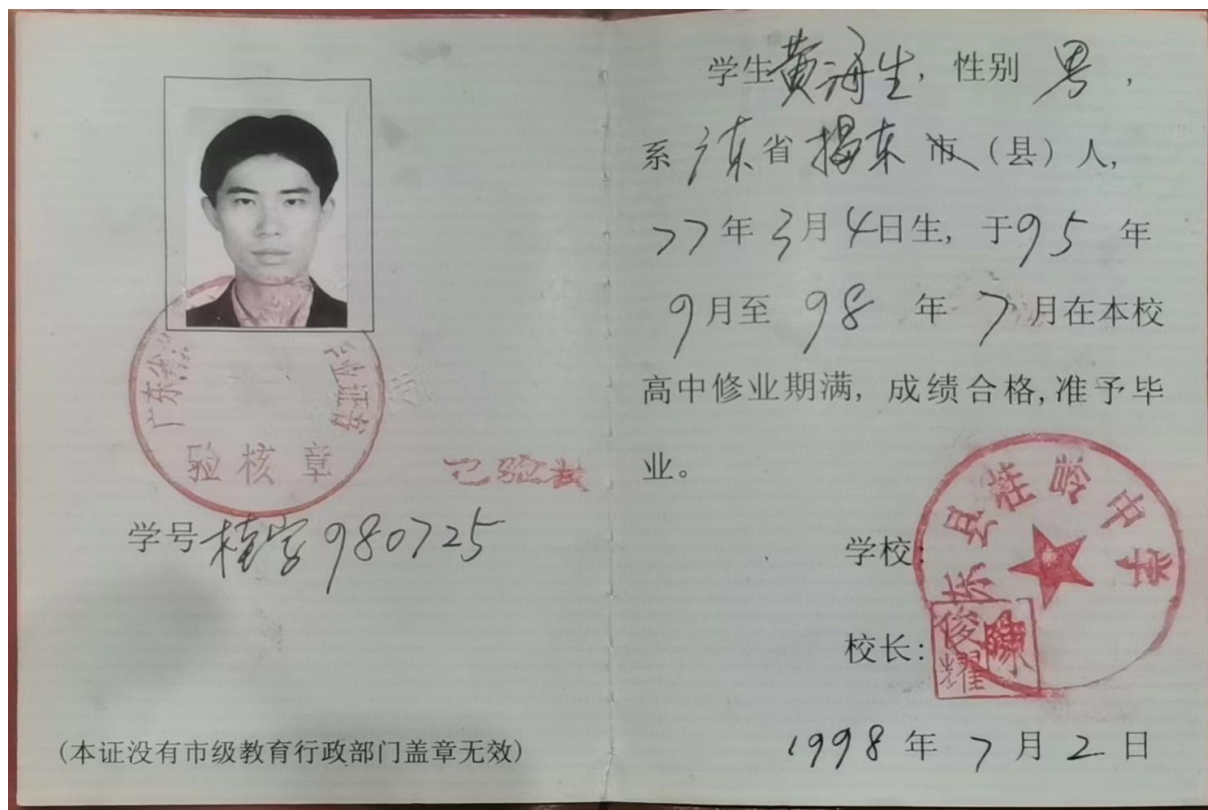 广东省
业证书
验核章
已验核
学号桂字980725
(本证没有市级教育行政部门盖章无效)
学生黄海生，性别 男，
系 广东 省 揭东 市（县）人，
77年3月4日生, 于95 年
9月至 98 年 7月在本校
高中修业期满，成绩合格,准予毕
业。
学校:
东县桂岭中学
校长:
陈俊耀
1998 年 7 月 2 日